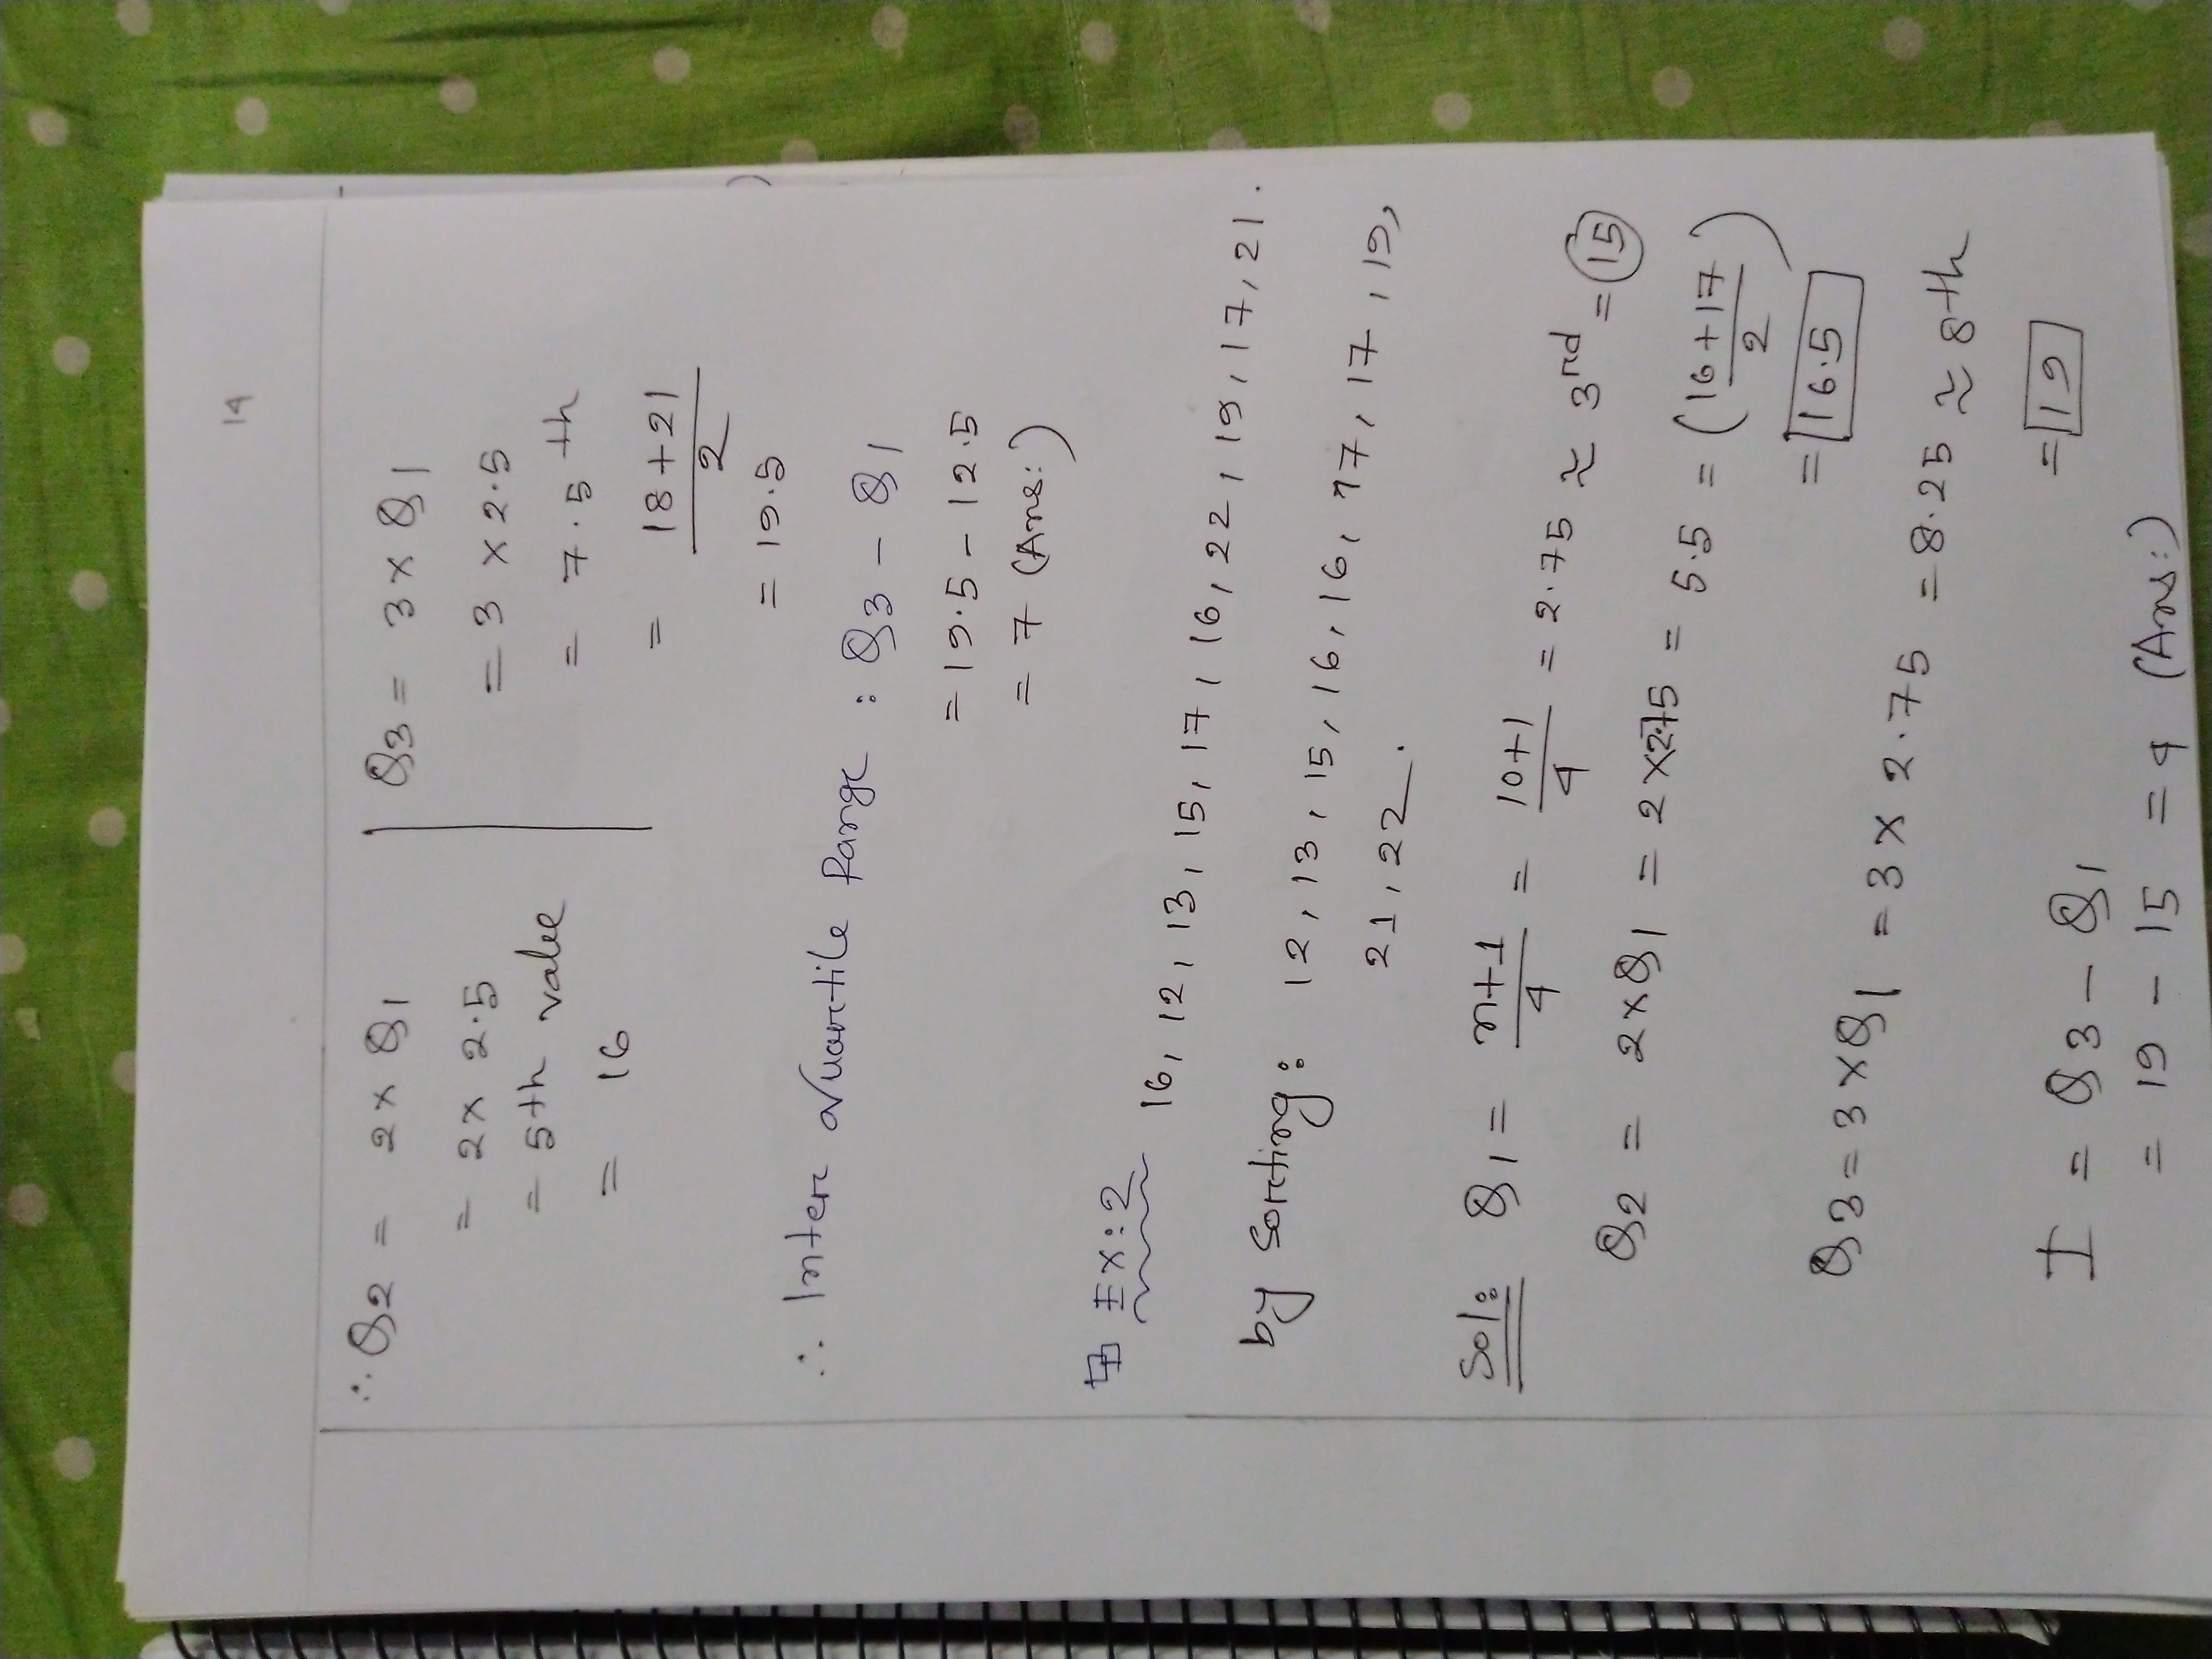 14
∴ Q2 = 2 x Q1
= 2 x 2.5
= 5th value
= 16
Q3 = 3 x Q1
= 3 x 2.5
= 7.5 th
= 18+21/2
= 19.5
∴ Inter quartile Range : Q3 - Q1
= 19.5 - 12.5
= 7 (Ans:)
Ex: 2
16, 12, 13, 15, 17, 16, 22, 19, 17, 21.
by Sorting: 12, 13, 15, 16, 16, 17, 17, 19,
21, 22.
Sol: Q1 = n+1/4 = 10+1/4 = 2.75 ≈ 3rd = 15
Q2 = 2xQ1 = 2x2.75 = 5.5 = (16+17/2)
= 16.5
Q3 = 3xQ1 = 3 x 2.75 = 8.25 ≈ 8th
= 19
I = Q3 - Q1
= 19 - 15 = 4 (Ans:)